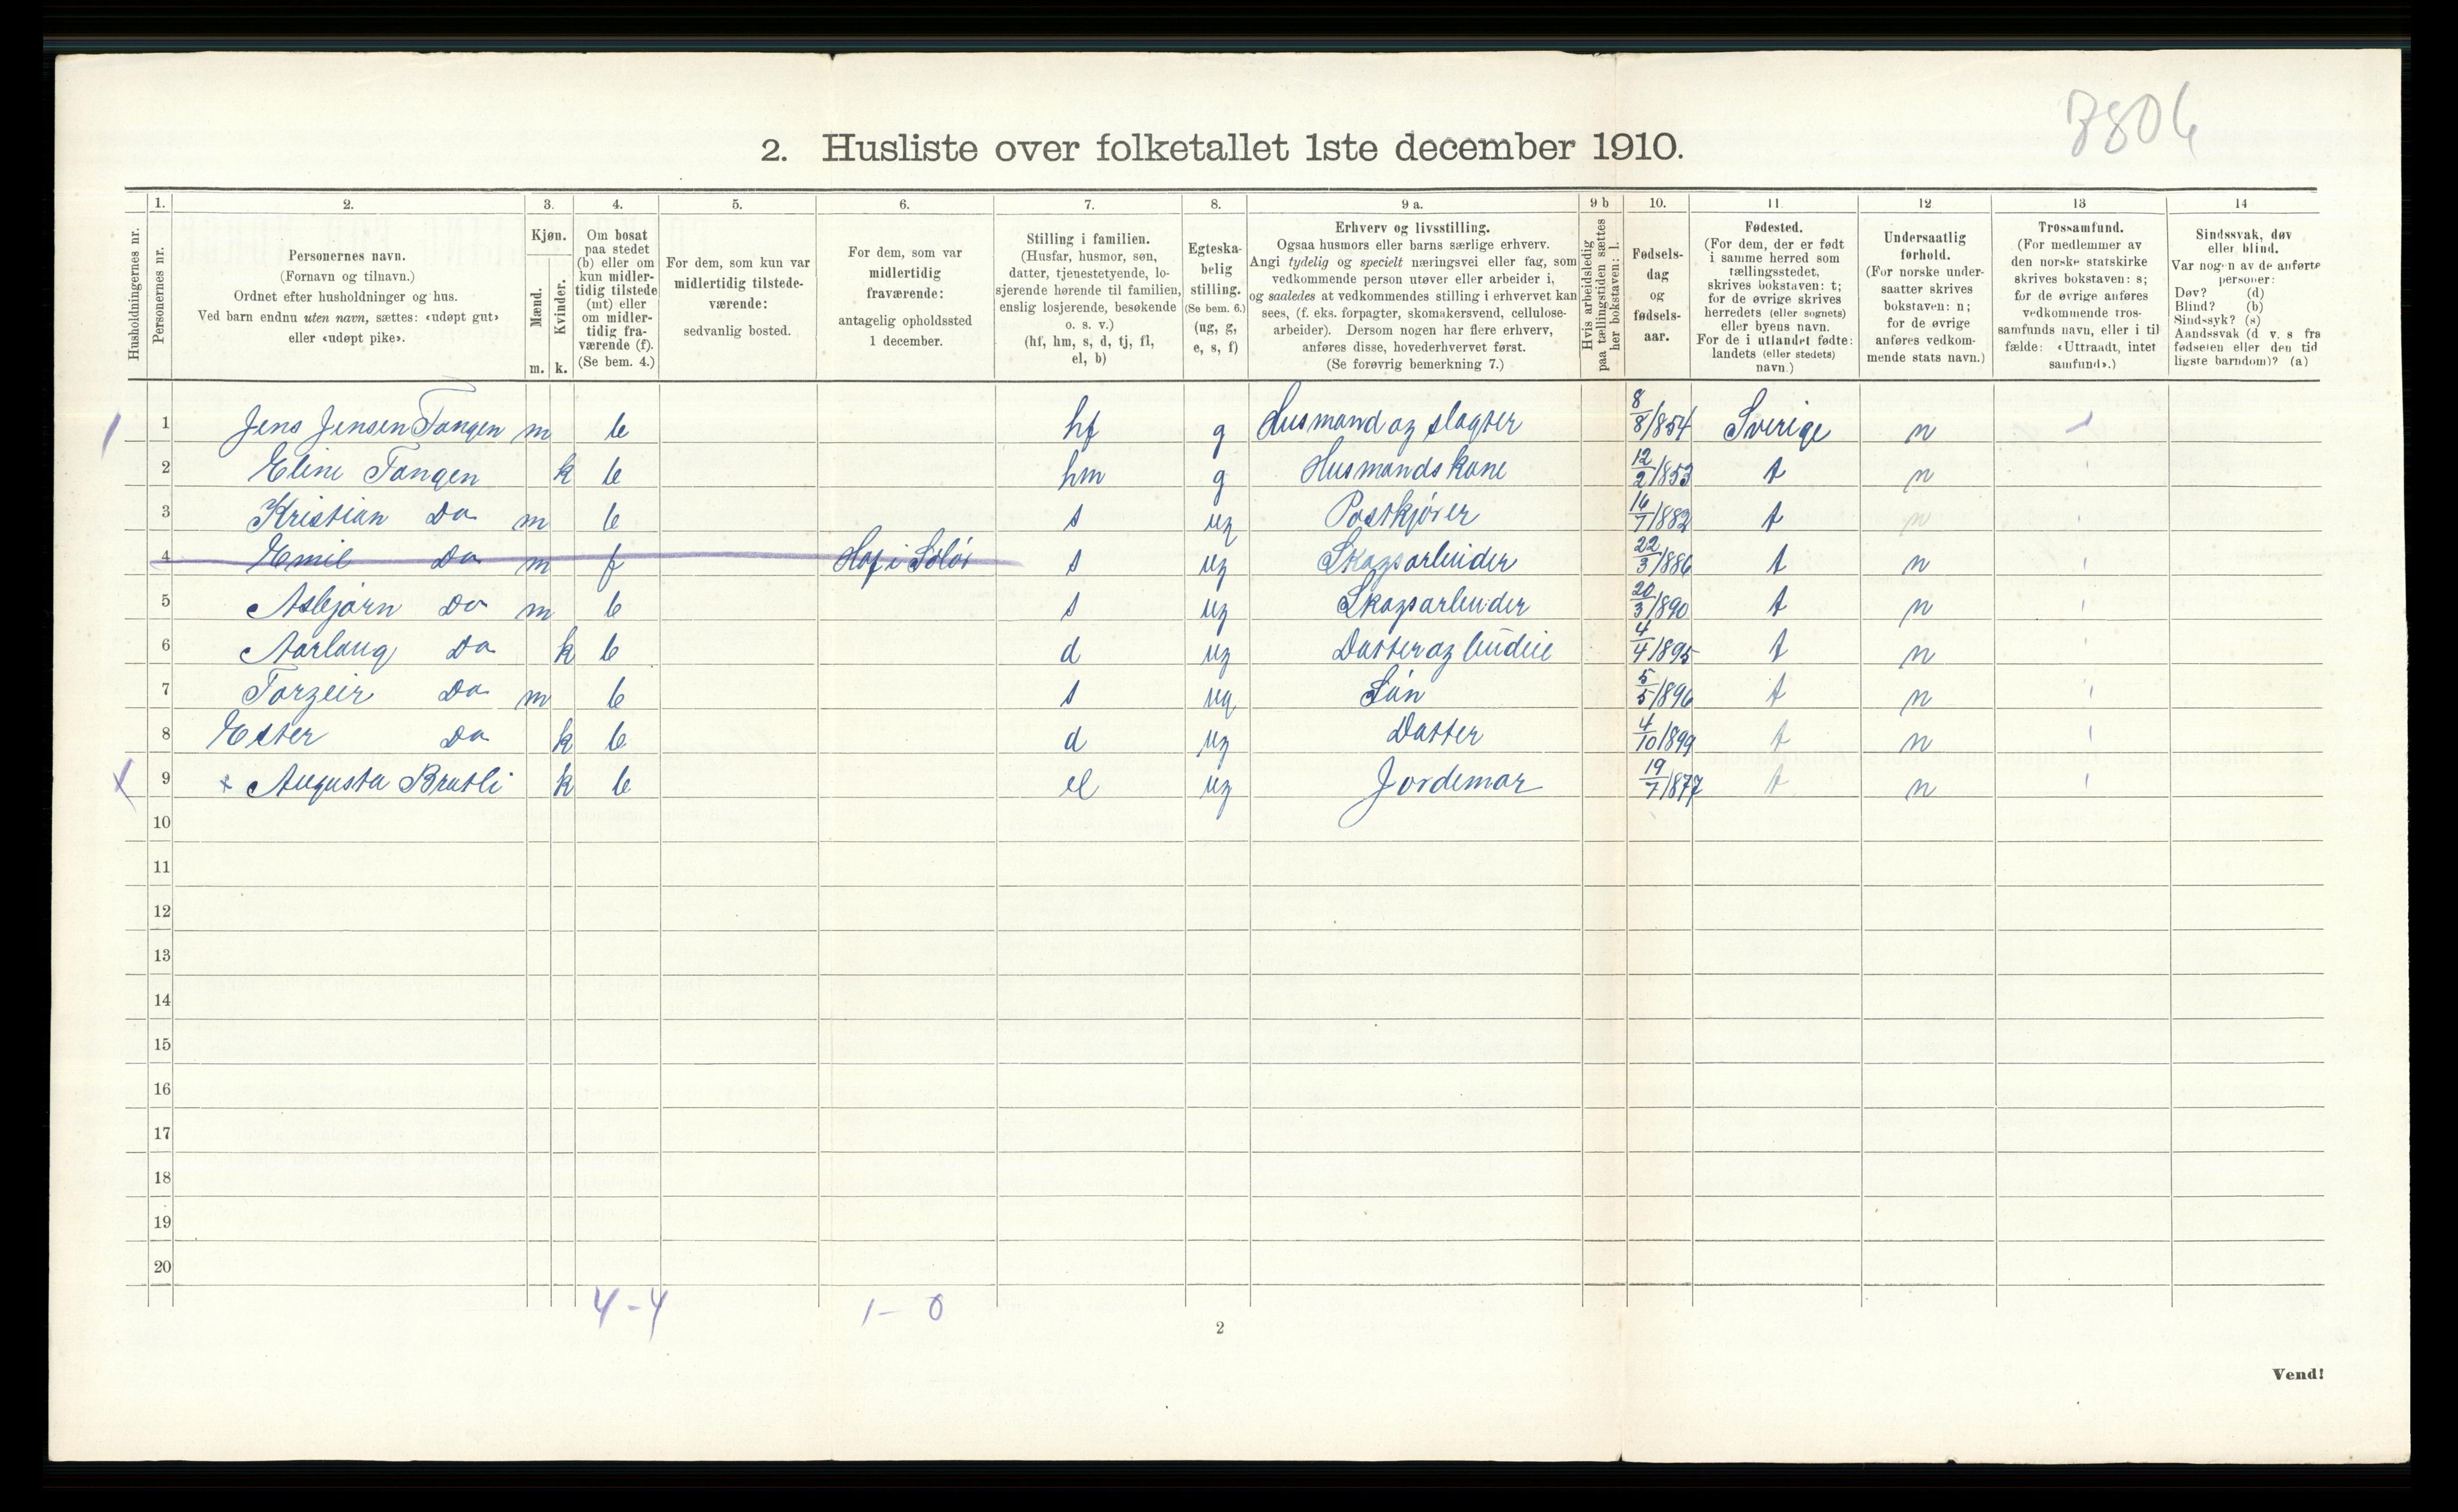 3806
2. Husliste over folketallet 1ste december 1910.
1. 2. 3. 4. 5. 6. 7. 8. 9 a. 9 b 10. 11. 12 13 14
Husholdningernes nr.
Personernes nr.
Personernes navn.
(Fornavn og tilnavn.)
Ordnet efter husholdninger og hus.
Ved barn endnu uten navn, sættes: «udøpt gut»
eller «udøpt pike».
Kjøn.
Mænd.
Kvinder.
m. k.
Om bosat
paa stedet
(b) eller om
kun midler-
tidig tilstede
(mt) eller
om midler-
tidig fra-
værende (f).
(Se bem. 4.)
For dem, som kun var
midlertidig tilstede-
værende:
sedvanlig bosted.
For dem, som var
midlertidig
fraværende:
antagelig opholdssted
1 december.
Stilling i familien.
(Husfar, husmor, søn,
datter, tjenestetyende, lo-
sjerende hørende til familien,
enslig losjerende, besøkende
o. s. v.)
(hf, hm, s, d, tj, fl,
el, b)
Egteska-
belig
stilling.
(Se bem. 6.)
(ug, g,
e, s, f)
Erhverv og livsstilling.
Ogsaa husmors eller barns særlige erhverv.
Angi tydelig og specielt næringsvei eller fag, som
vedkommende person utøver eller arbeider i,
og saaledes at vedkommendes stilling i erhvervet kan
sees, (f. eks. forpagter, skomakersvend, cellulose-
arbeider). Dersom nogen har flere erhverv,
anføres disse, hovederhvervet først.
(Se forøvrig bemerkning 7.)
Hvis arbeidsledig
paa tællingstiden sættes
her bokstaven: l.
Fødsels-
dag
og
fødsels-
aar.
Fødested.
(For dem, der er født
i samme herred som
tællingsstedet,
skrives bokstaven: t;
for de øvrige skrives
herredets (eller sognets)
eller byens navn.
For de i utlandet fødte:
landets (eller stedets)
navn.)
Undersaatlig
forhold.
(For norske under-
saatter skrives
bokstaven: n;
for de øvrige
anføres vedkom-
mende stats navn.)
Trossamfund.
(For medlemmer av
den norske statskirke
skrives bokstaven: s;
for de øvrige anføres
vedkommende tros-
samfunds navn, eller i til
fælde: «Uttraadt, intet
samfund».)
Sindssvak, døv
eller blind.
Var nogen av de anførte
personer:
Døv? (d)
Blind? (b)
Sindssyk? (s)
Aandssvak (d. v. s. fra
fødselen eller den tid
ligste barndom)? (a)
1 Jens Jensen Tangen m b hf g Husmand og slagter 8/8/854 Sverige n
2 Eline Tangen k b hm g Husmandskone 12/2/853 t n
3 Kristian Do m b s ug Postkjører 16/7/882 t n
4 Emil Do m f Hof i Solør s ug Skogsarbeider 22/3/886 t n
5 Asbjørn Do m b s ug Skogsarbeider 20/3/890 t n
6 Aarlaug Do k b d ug Datter og budeie 4/4/895 t n
7 Torgeir Do m b s ug Søn 5/5/896 t n
8 Ester Do k b d ug Datter 4/10/899 t n
9 x Augusta Bratli k b el ug Jordemor 19/7/877 t n
10
11
12
13
14
15
16
17
18
19
20
4-4 1-0
2
Vend!